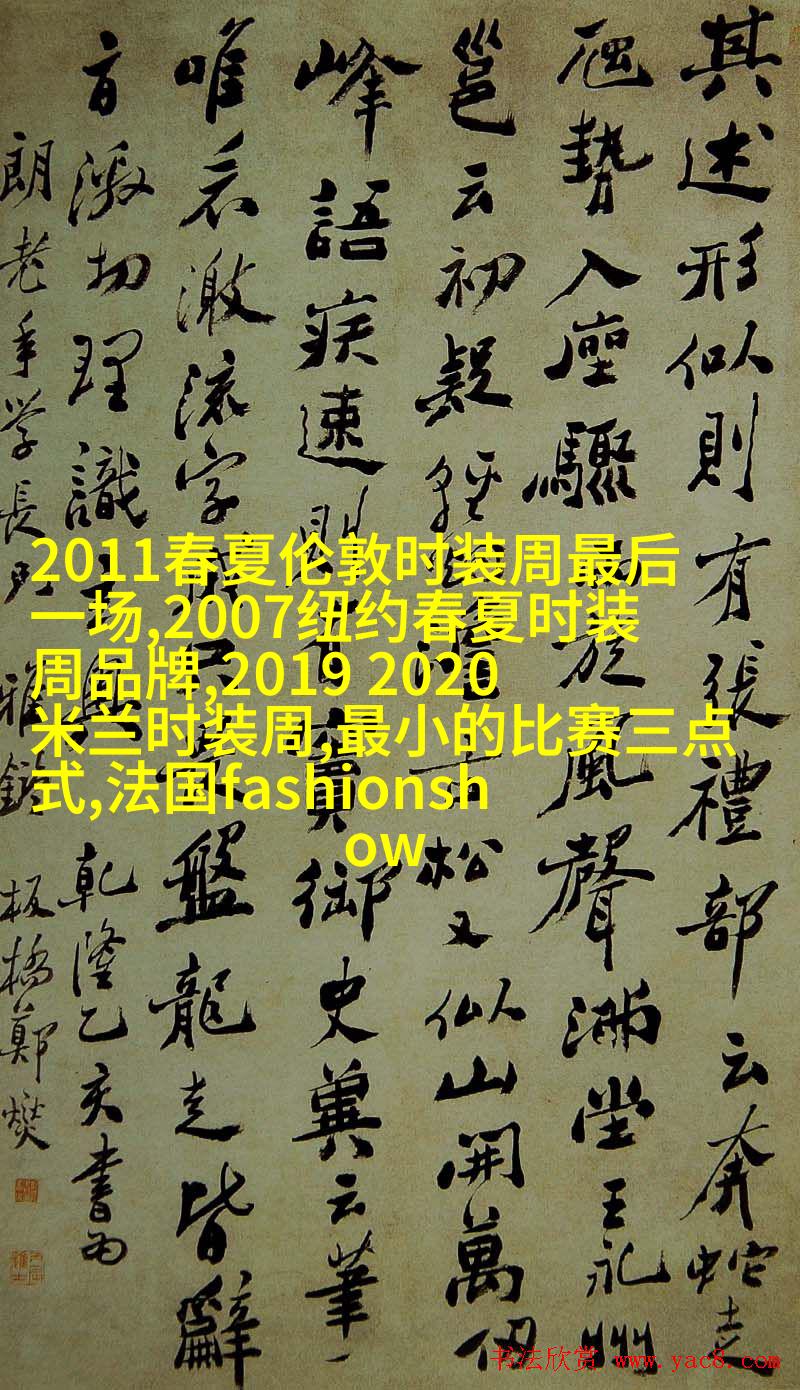 其述形似則有張禮部云奔蛇走
虺勢入座驟雨旋風聲滿堂王永州
邕云初疑輕煙澹古松又似山開萬仞
峰語疾速則有竇御史冀云筆一
唯看激流字成只畏盤龍走皆辭
旨激切理識玄奧乾隆乙亥書為
朗老年学長兄雅鉴板橋鄭燮
2011春夏伦敦时装周最后
一场,2007纽约春夏时装
周品牌,2019 2020
米兰时装周,最小的比赛三点
式,法国fashionsh
ow
书法欣赏 www.yac8.com